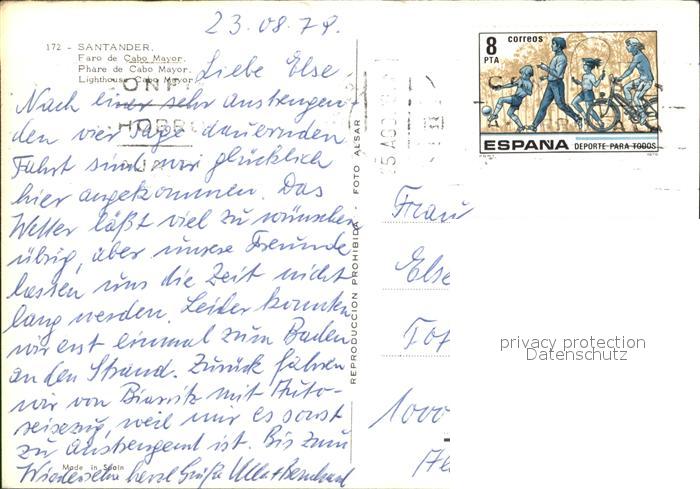 23.08.79.
172 - SANTANDER.
Faro de Cabo Mayor.
Phare de Cabo Mayor.
Lighthouse Cabo Mayor.
Liebe Else.
Nach einer sehr anstrengen-
den vier Tage dauernden
Fahrt sind wir glücklich
hier angekommen. Das
Wetter läßt viel zu wünschen
übrig, aber unsere Freunde
lassen uns die Zeit nicht
lang werden. Leider konnten
wir erst einmal zum Baden
an den Strand. Zurück fahren
wir von Biarritz mit Auto-
reisezug, weil mir es sonst
zu anstrengend ist. Bis zum
Wiedersehn herzl Grüße Ulla + Bernhard
Made in Spain
REPRODUCCION PROHIBIDA - FOTO ALSAR
8
PTA
correos
ESPAÑA DEPORTE PARA TODOS
Frau
Else
1000
privacy protection
Datenschutz